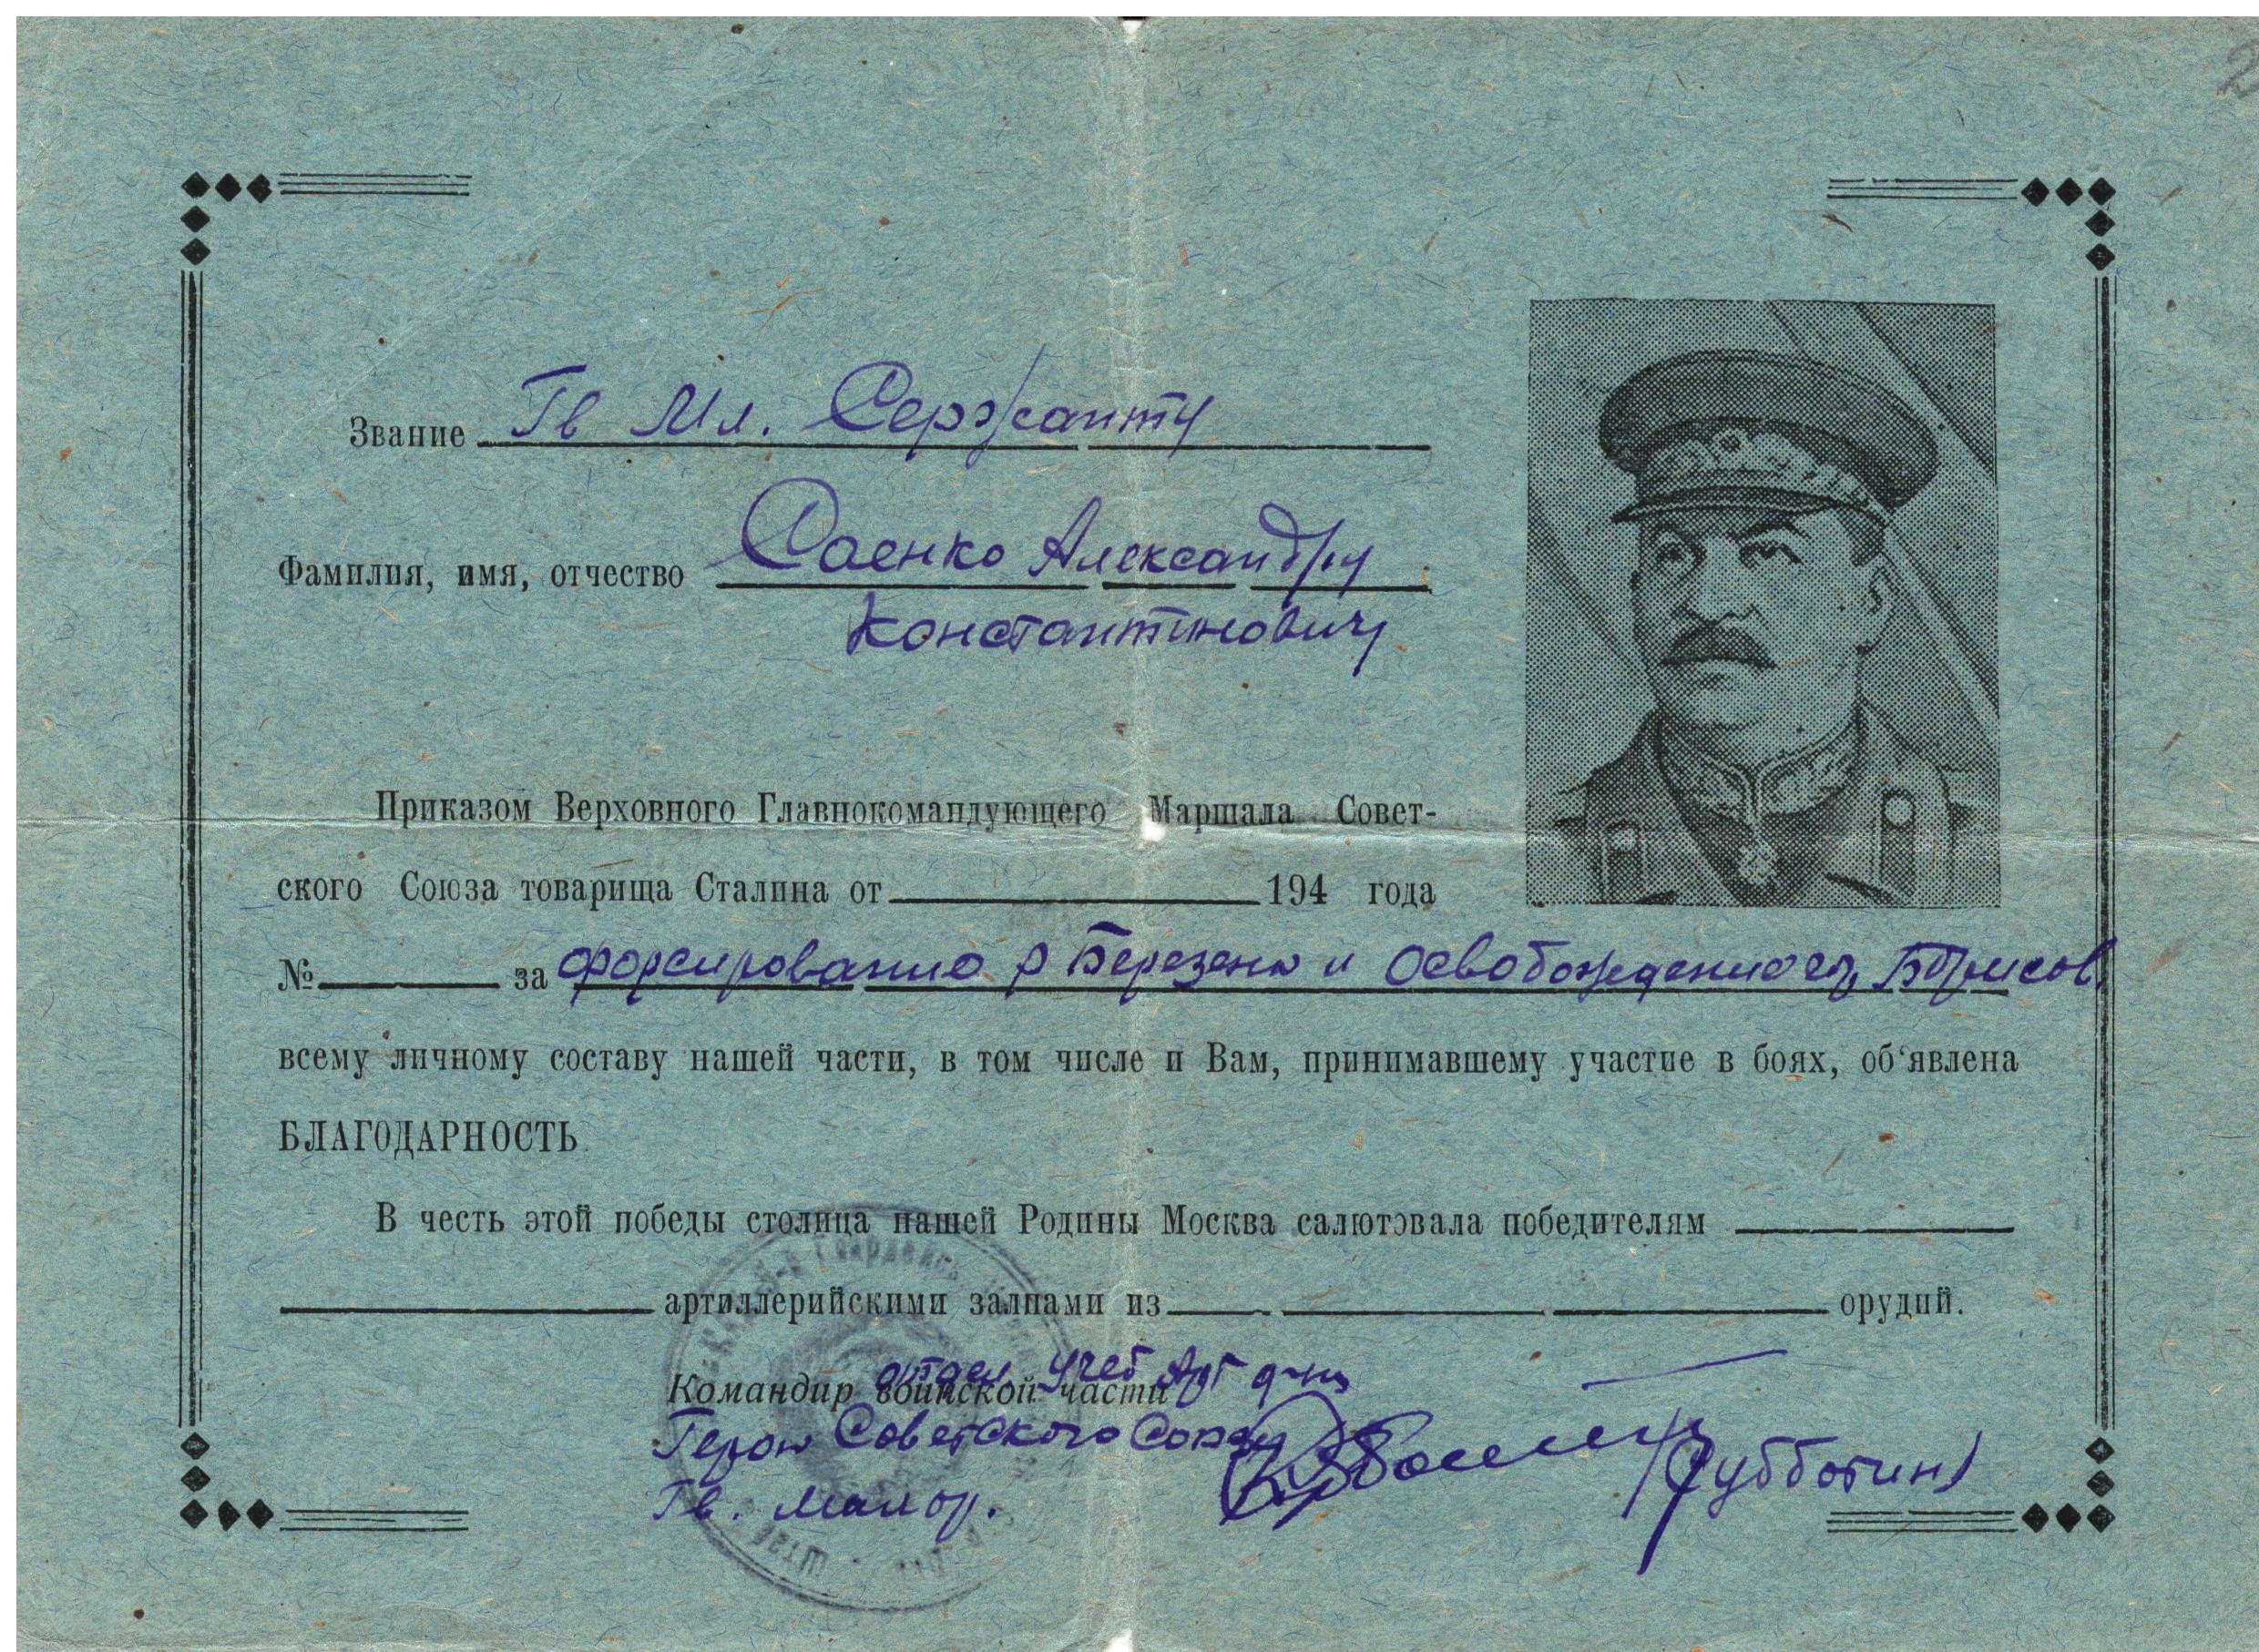 2
Звание Гв Мл. Сержанту
Фамилия, имя, отчество Саенко Александру
Константинович
Приказом Верховного Главнокомандующего Маршала Совет-
ского Союза товарища Сталина от 194 года
№ за форсирование р Березена и освобождение гор. Борисов
всему личному составу нашей части, в том числе и Вам, принимавшему участие в боях, об‘явлена
БЛАГОДАРНОСТЬ
В честь этой победы столица нашей Родины Москва салютовала победителям
артиллерийскими залпами из орудий.
отдел. Учеб Арт
Командир воинской части
Герой Советского Союза
Гв. Майор. (Субботин)